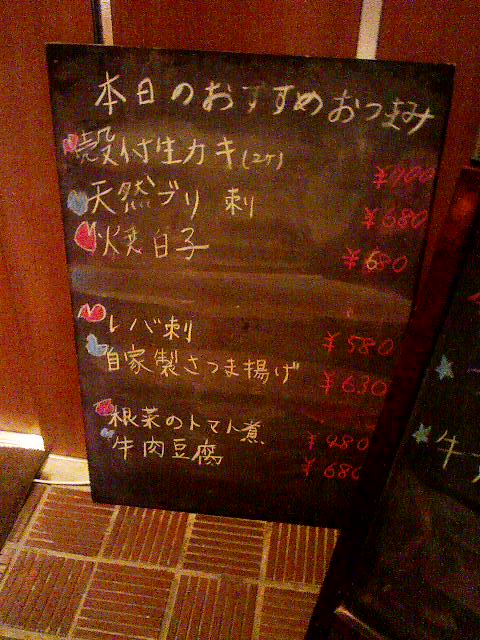 本日のおすすめおつまみ
殻付生カキ(2ケ) ¥900
天然ブリ刺 ¥680
焼白子 ¥680
レバ刺 ¥580
自家製さつま揚げ ¥630
根菜のトマト煮 ¥480
牛肉豆腐 ¥680
牛